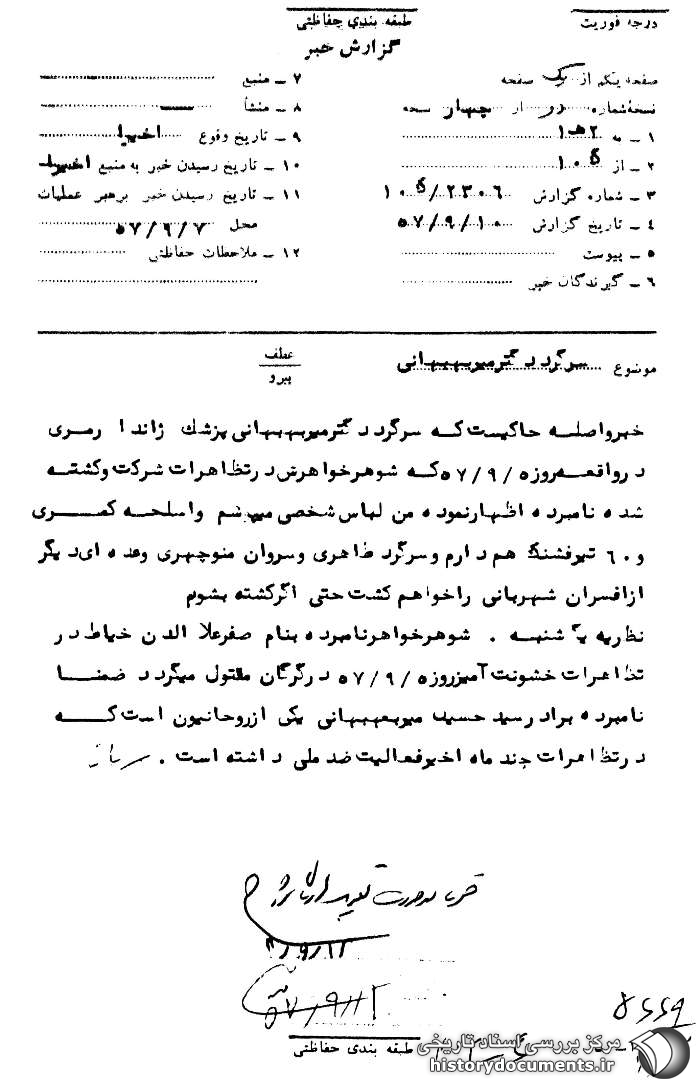 درجه فوریت
طبقه بندی حفاظتی
گزارش خبر
صفحه یکم از یک صفحه
نسخه شماره دو از چهار نسخه
۱ ـ به ۲هـ۱
۲ ـ از ۱۰ﻫ
۳ ـ شماره گزارش ۱۰ﻫ/۲۳۰۶
۴ ـ تاریخ گزارش ۵۷/۹/۱۰
۵ ـ پیوست
۶ ـ گیرندگان خبر
۷ ـ منبع
۸ ـ منشأ
۹ ـ تاریخ وقوع اخیرا
۱۰ ـ تاریخ رسیدن خبر به منبع اخیرا
۱۱ ـ تاریخ رسیدن خبر برهبر عملیات
محل ۵۷/۹/۷
۱۲ ـ ملاحظات حفاظتی
موضوع سرگرد دکترمیربهبهانی
عطف
پیرو
خبرواصله حاکیست که سرگرد دکترمیربهبهانی پزشك ژاندارمری
در واقعه روز ۵۷/۹/۵ که شوهرخواهرش در تظاهرات شرکت و کشته
شده نامبرده اظهارنموده من لباس شخصی میپوشم و اسلحه کمری
و ۶۰ تیرفشنگ هم دارم و سرگرد طاهری و سروان منوچهری وعده ای دیگر
از افسران شهربانی را خواهم کشت حتی اگر کشته بشوم
نظریه یکشنبه . شوهرخواهرنامبرده بنام صفرعلا الدن خیاط در
تظاهرات خشونت آمیزروز ۵۷/۹/۵ در گرگان مقتول میگردد ضمنا
نامبرده برادر سید حسین میربهبهانی یکی از روحانیون است که
در تظاهرات چند ماه اخیر فعالیت ضد ملی داشته است .
۵۷/۹/۱۲
طبقه بندی حفاظتی
مرکز بررسی اسناد تاریخی
historydocuments.ir